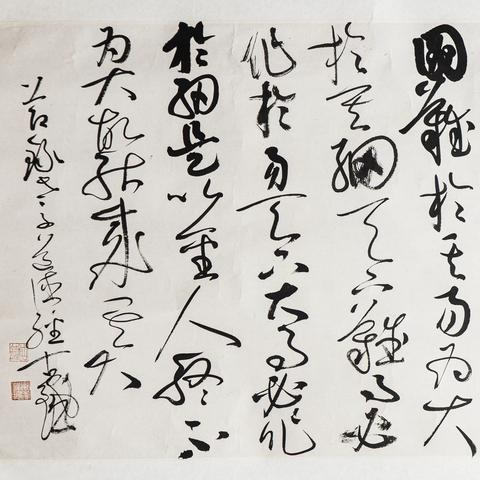 圖難於其易為大
於其細天下難事必
作於易天下大事必作
於細是以聖人終不
為大故能成其大
錄老子道德經